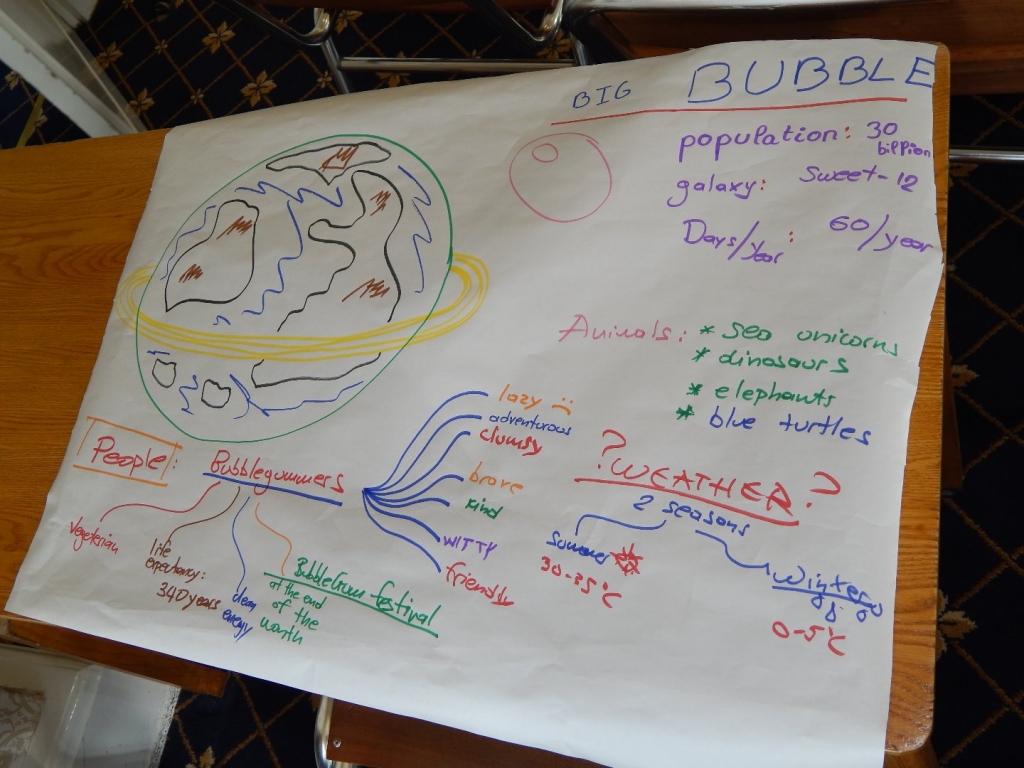 BIG BUBBLE
population: 30 billion
galaxy: Sweet-12
Days/year: 60/year
Animals: * sea unicorns
* dinosaurs
* elephants
* blue turtles
People:
Bubblegummers
lazy :(
adventurous
clumsy
brave
kind
WITTY
friendly
vegeterian
life
expectancy:
340 years
clean
energy
BubbleGum festival
at the end
of the
month
? WEATHER ?
2 seasons
Summer
30-35°C
Winter
0-5°C